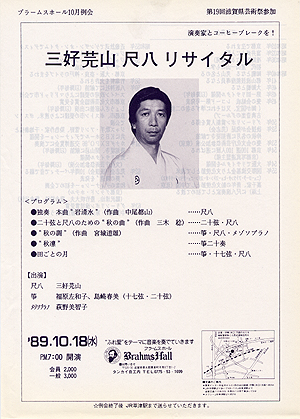 ブラームスホール10月例会
第19回滋賀県芸術祭参加
演奏家とコーヒーブレークを!
三好芫山 尺八 リサイタル
<プログラム>
●独奏 本曲"岩清水"(作曲 中尾都山) ……尺八
●二十弦と尺八のための"秋の曲"(作曲 三木 稔) ……二十弦・尺八
●"秋の調"(作曲 宮城道雄) ……箏・尺八・メゾソプラノ
●"秋凛" ……箏二十奏
●田ごとの月 ……箏・十七弦・尺八
【出演】
尺八 三好芫山
箏 福原左和子、島崎春美(十七弦・二十弦)
メゾソプラノ 荻野美智子
'89.10.18㈬
PM7:00 開演
会員 2,000
一般 3,000
"ふれ愛"をテーマに音楽を奏でていきます
ブラームスホール
Brahms Hall
タンカイ自工内 TEL 0775-63-1090
☆例会終了後 JR草津駅まで送らせていただきます。